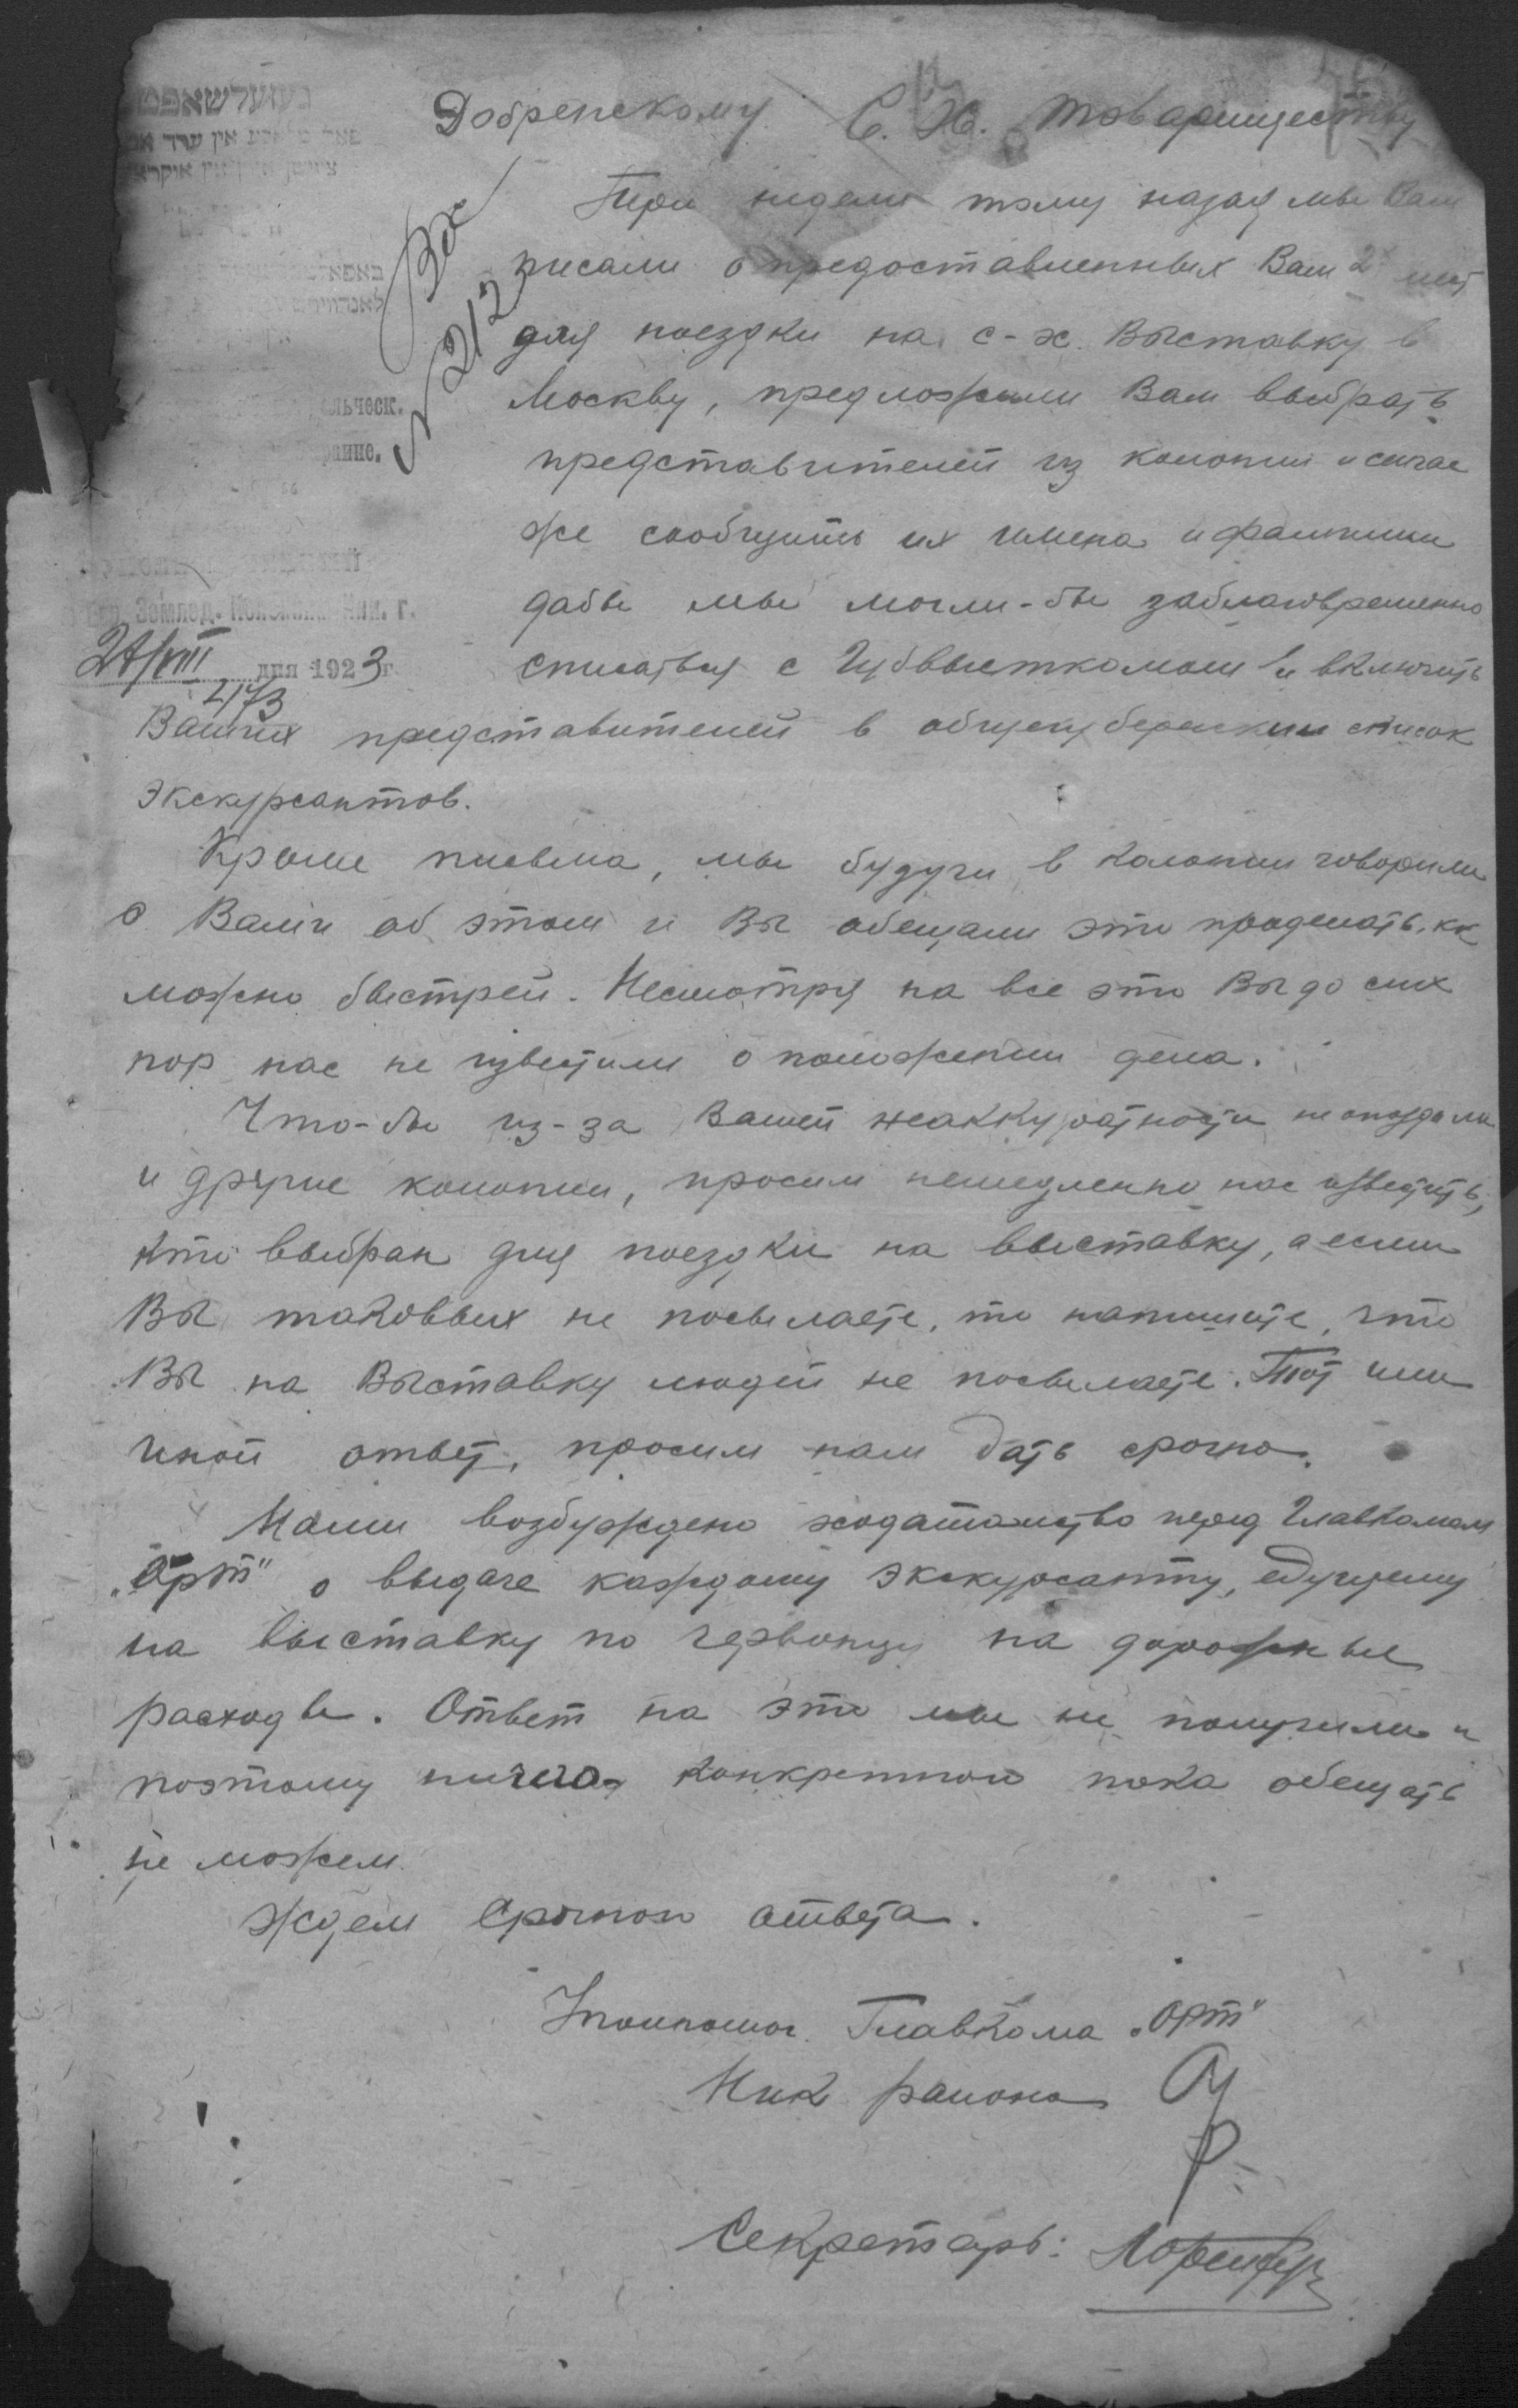 געזעלשאפט
אין ערד
Добренскому С. Х. Товариществу
Три недели тому назад мы Вам
писали о предоставленных Вам 2 мест
для поездки на с-х. Выставку в
Москву, предложили Вам выбрать
представителей из колонии и сейчас
же сообщить их имена и фамилии
дабы мы могли-бы заблаговременно
списаться с Губвысткомом и включить
Ваших представителей в общегубернский список
экскурсантов.
№ 212
льческ.
раине.
Землед.
дня 1923 г
2173
Кроме письма, мы будучи в колонии говорили
с Вами об этом и Вы обещали это проделать, кк
можно быстрей. Несмотря на все это Вы до сих
пор нас не известили о положении дела.
Что-бы из-за Вашей неаккуратности не опоздали
и другие колонии, просим немедленно нас известить,
кто выбран для поездки на выставку, а если
Вы таковых не посылаете, то напишите, что
Вы на Выставку людей не посылаете. Тот или
иной ответ, просим нам дать срочно.
Нами возбуждено ходатайство перед Главкомом
„Орт" о выдаче каждому экскурсанту, едущему
на выставку по червонцу на дорожные
расходы. Ответ на это мы не получили и
поэтому ничего конкретного пока обещать
не можем.
Ждем срочного ответа.
Уполномоч. Главкома „Орт"
Ник района
Секретарь: